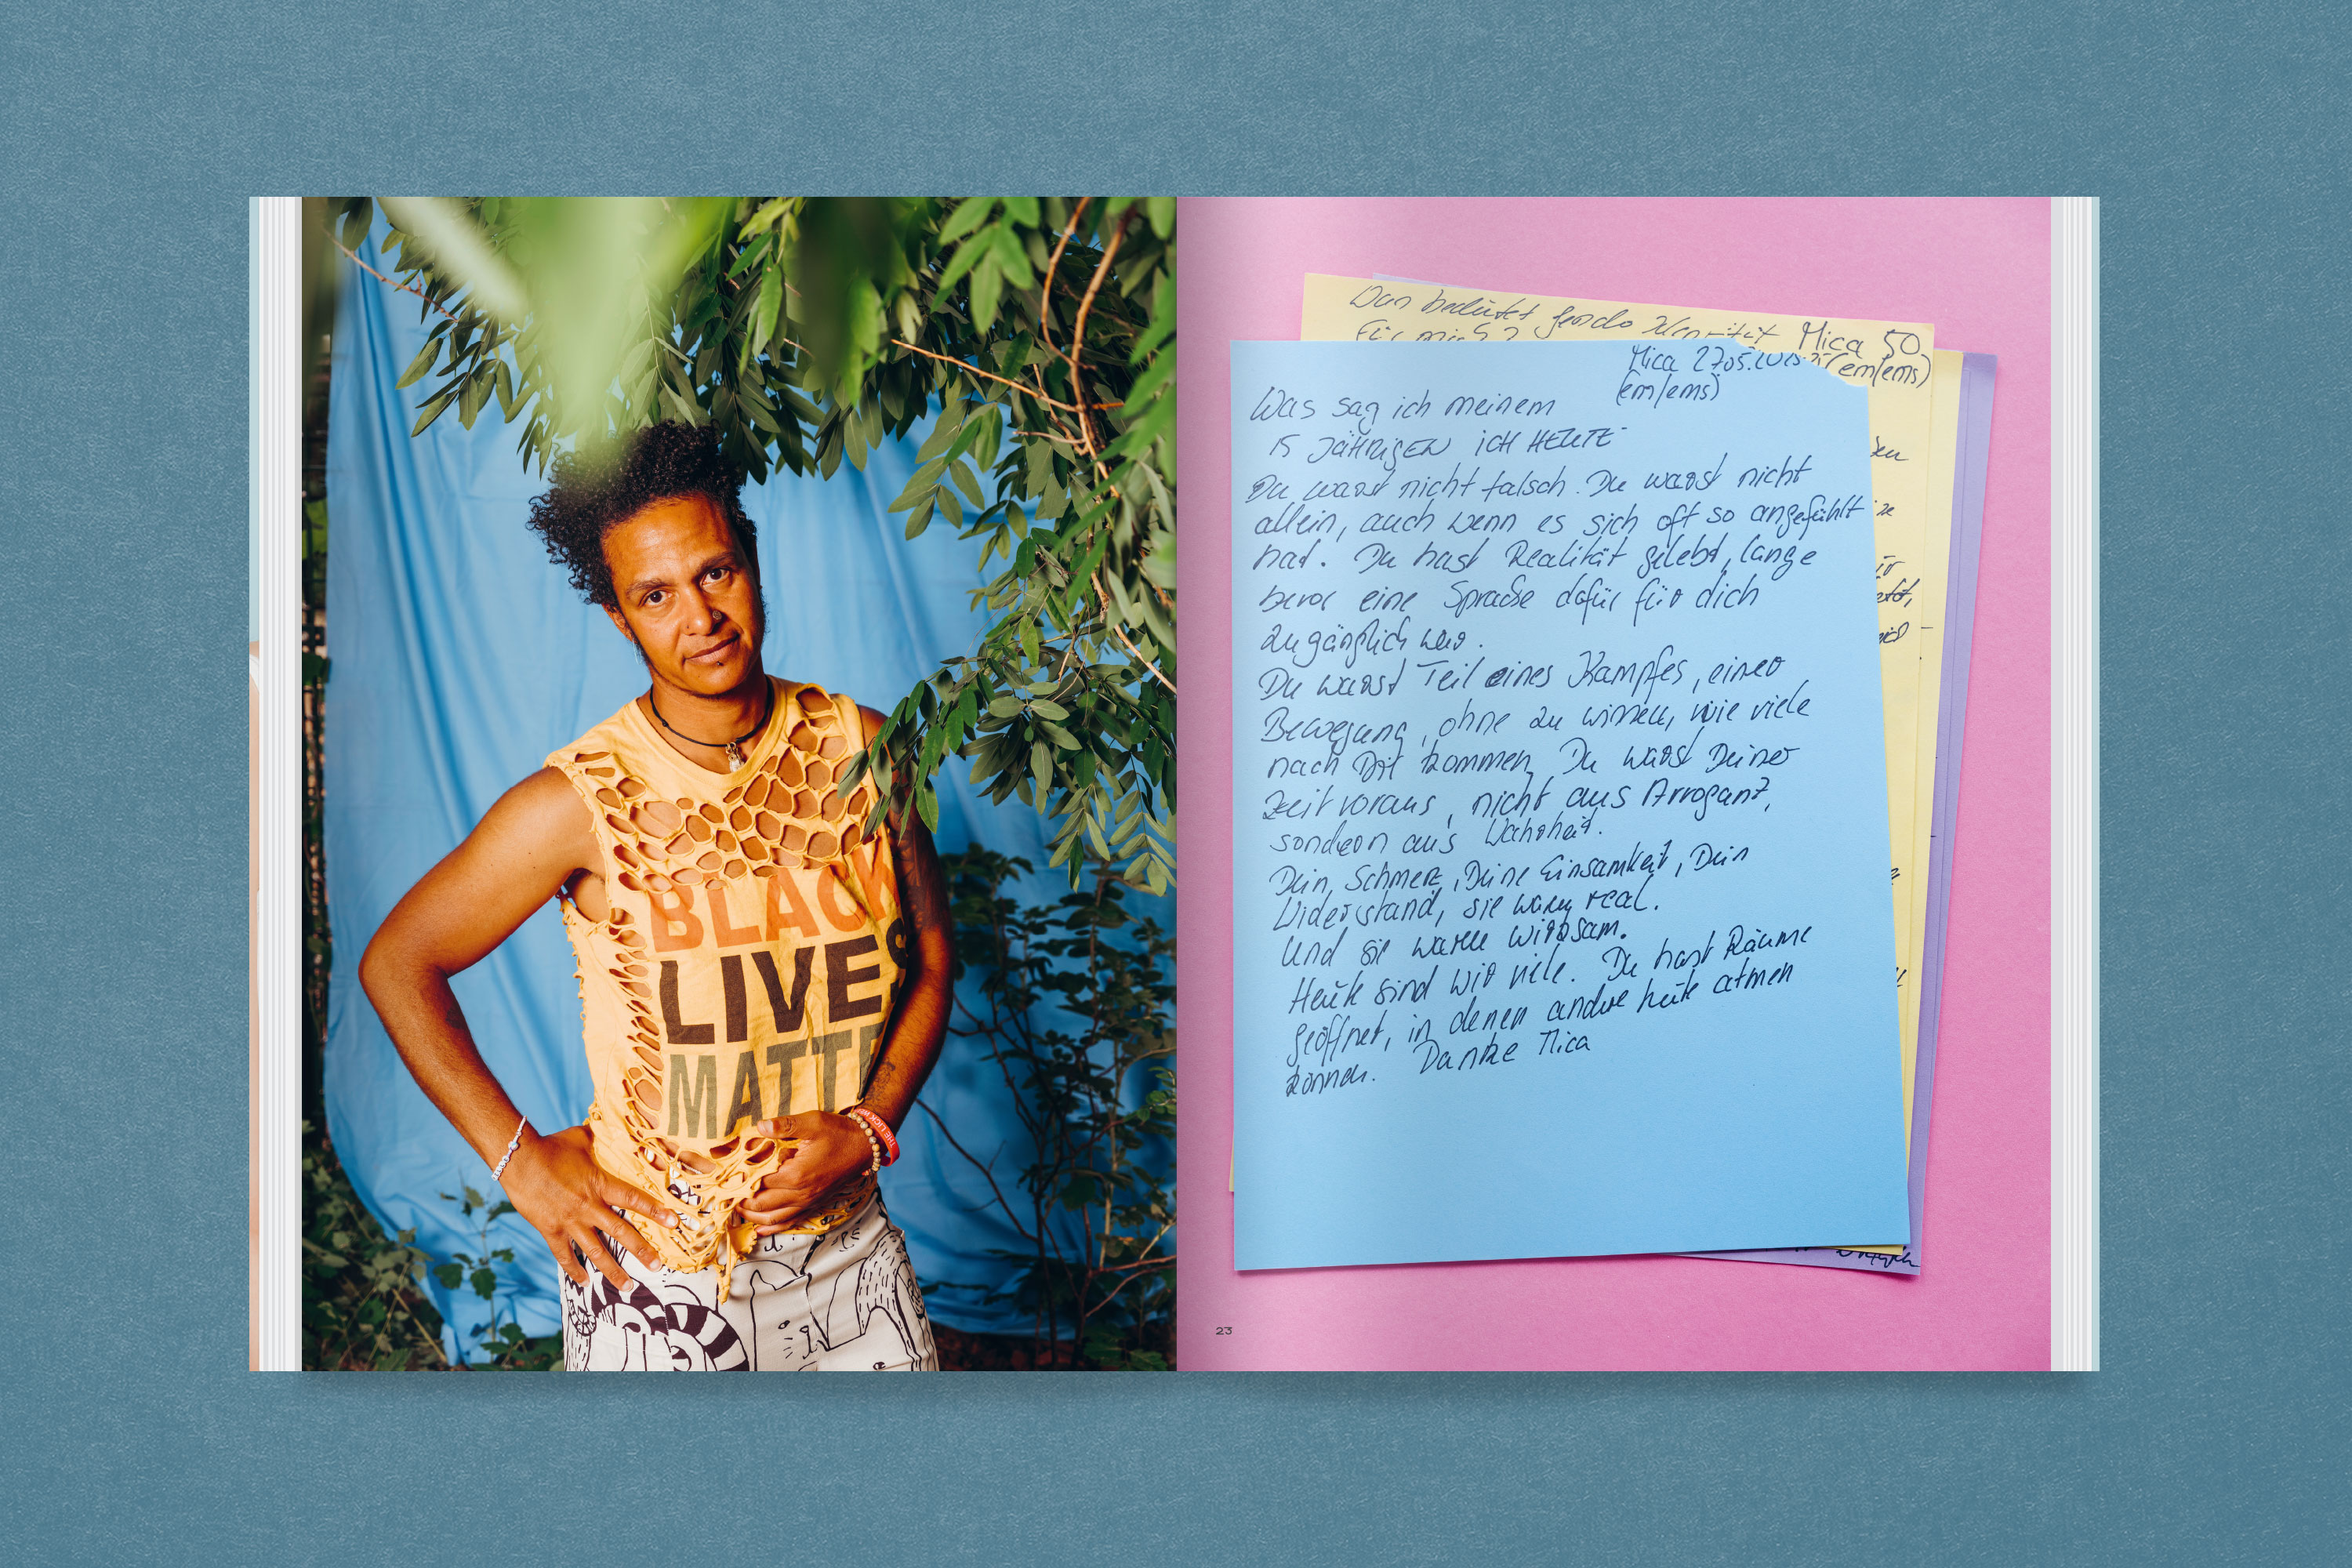 BLACK
LIVES
MATTE
THE LICK
Was bedeutet Gender Identität Mica 50
für mich? (em/ems)
Mica 27.05.2025
(em/ems)
Was sag ich meinem
15 JÄHRIGEN ICH HEUTE
Du warst nicht falsch. Du warst nicht
allein, auch wenn es sich oft so angefühlt
hat. Du hast Realität gelebt, lange
bevor eine Sprache dafür für dich
zugänglich war.
Du warst Teil eines Kampfes, einer
Bewegung, ohne zu wissen, wie viele
nach Dir kommen. Du warst Deiner
Zeit voraus, nicht aus Arroganz,
sondern aus Wahrheit.
Dein Schmerz, Deine Einsamkeit, Dein
Widerstand, sie waren real.
Und sie waren wirksam.
Heute sind wir viele. Du hast Räume
geöffnet, in denen andere heute atmen
können. Danke Mica
23